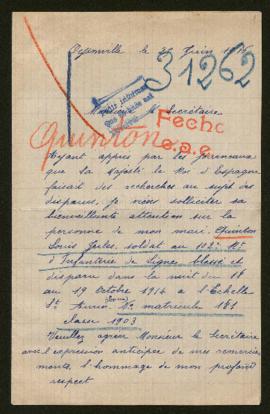 le 26 Juin
31262
Monsieur le Secrétaire
Fecha
Quinton
Ayant appris par les journaux
que Sa Majesté le Roi d'Espagne
faisait des recherches au sujet des
disparus, je viens solliciter sa
bienveillante attention sur la
personne de mon mari. Quinton
Louis Jules, soldat au 103e Rt
d'Infanterie de Ligne, blessé et
disparu dans la nuit du 18
au 19 Octobre 1914 à l'Echelle
St Aurin (Somme) No matricule 181
Classe 1903
Veuillez agréer Monsieur le Secrétaire
avec l'expression anticipée de mes remercie
ments, l'hommage de mon profond
respect